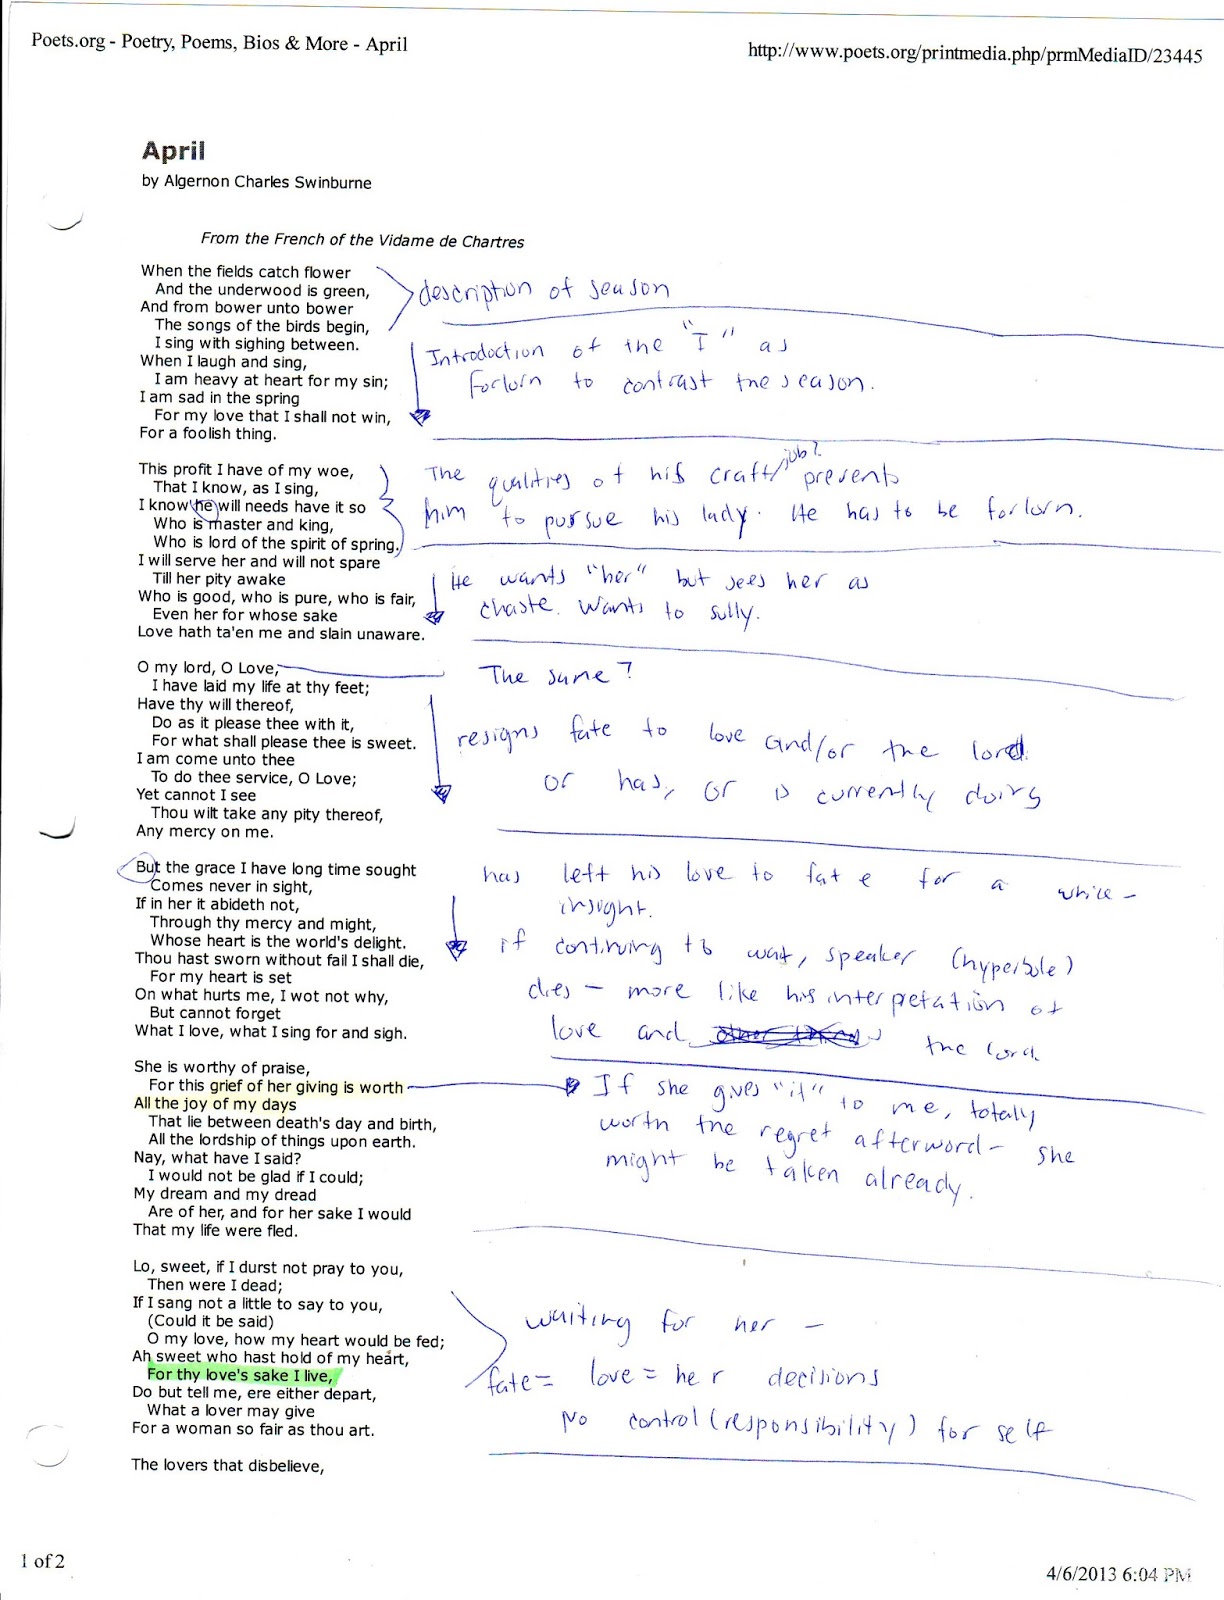 Poets.org - Poetry, Poems, Bios & More - April
http://www.poets.org/printmedia.php/prmMediaID/23445
April
by Algernon Charles Swinburne
From the French of the Vidame de Chartres
When the fields catch flower
And the underwood is green,
And from bower unto bower
The songs of the birds begin,
I sing with sighing between.
When I laugh and sing,
I am heavy at heart for my sin;
I am sad in the spring
For my love that I shall not win,
For a foolish thing.
description of season
Introduction of the "I" as
forlorn to contrast the season.
This profit I have of my woe,
That I know, as I sing,
I know he will needs have it so
Who is master and king,
Who is lord of the spirit of spring.
I will serve her and will not spare
Till her pity awake
Who is good, who is pure, who is fair,
Even her for whose sake
Love hath ta'en me and slain unaware.
The qualities of his craft/job? prevents
him to pursue his lady. He has to be forlorn.
He wants "her" but sees her as
chaste. Wants to sully.
O my lord, O Love,
I have laid my life at thy feet;
Have thy will thereof,
Do as it please thee with it,
For what shall please thee is sweet.
I am come unto thee
To do thee service, O Love;
Yet cannot I see
Thou wilt take any pity thereof,
Any mercy on me.
The same?
resigns fate to love and/or the lord
or has, or is currently doing
But the grace I have long time sought
Comes never in sight,
If in her it abideth not,
Through thy mercy and might,
Whose heart is the world's delight.
Thou hast sworn without fail I shall die,
For my heart is set
On what hurts me, I wot not why,
But cannot forget
What I love, what I sing for and sigh.
has left his love to fate for a while -
insight.
if continuing to wait, speaker (hyperbole)
dies - more like his interpretation of
love and the lord.
She is worthy of praise,
For this grief of her giving is worth
All the joy of my days
That lie between death's day and birth,
All the lordship of things upon earth.
Nay, what have I said?
I would not be glad if I could;
My dream and my dread
Are of her, and for her sake I would
That my life were fled.
If she gives "it" to me, totally
worth the regret afterword - she
might be taken already.
Lo, sweet, if I durst not pray to you,
Then were I dead;
If I sang not a little to say to you,
(Could it be said)
O my love, how my heart would be fed;
Ah sweet who hast hold of my heart,
For thy love's sake I live,
Do but tell me, ere either depart,
What a lover may give
For a woman so fair as thou art.
waiting for her -
fate = love = her decisions
No control (responsibility) for self
The lovers that disbelieve,
1 of 2
4/6/2013 6:04 PM